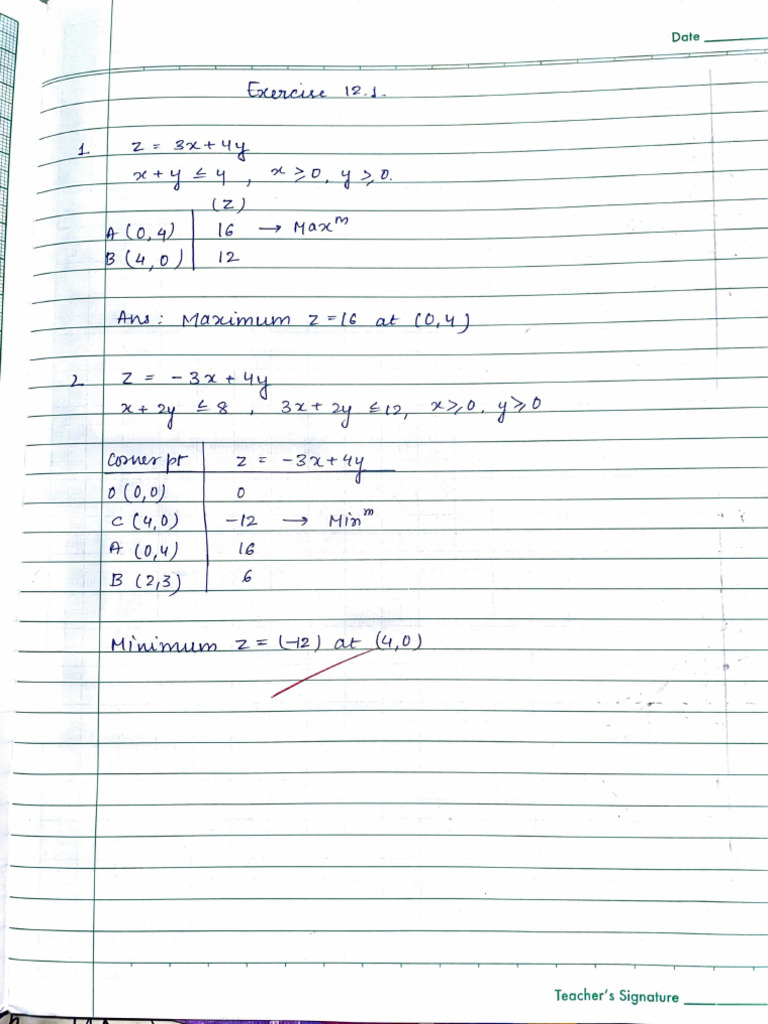 Date
Exercise 12.1.
1. z = 3x + 4y
x + y ≤ 4 , x ≥ 0, y ≥ 0.
(Z)
A (0,4) 16 → Maxᵐ
B (4,0) 12
Ans: Maximum z = 16 at (0,4)
2 z = -3x + 4y
x + 2y ≤ 8 , 3x + 2y ≤ 12, x ≥ 0, y ≥ 0
Corner pt z = -3x + 4y
O (0,0) 0
C (4,0) -12 → Minᵐ
A (0,4) 16
B (2,3) 6
Minimum z = (-12) at (4,0)
Teacher's Signature